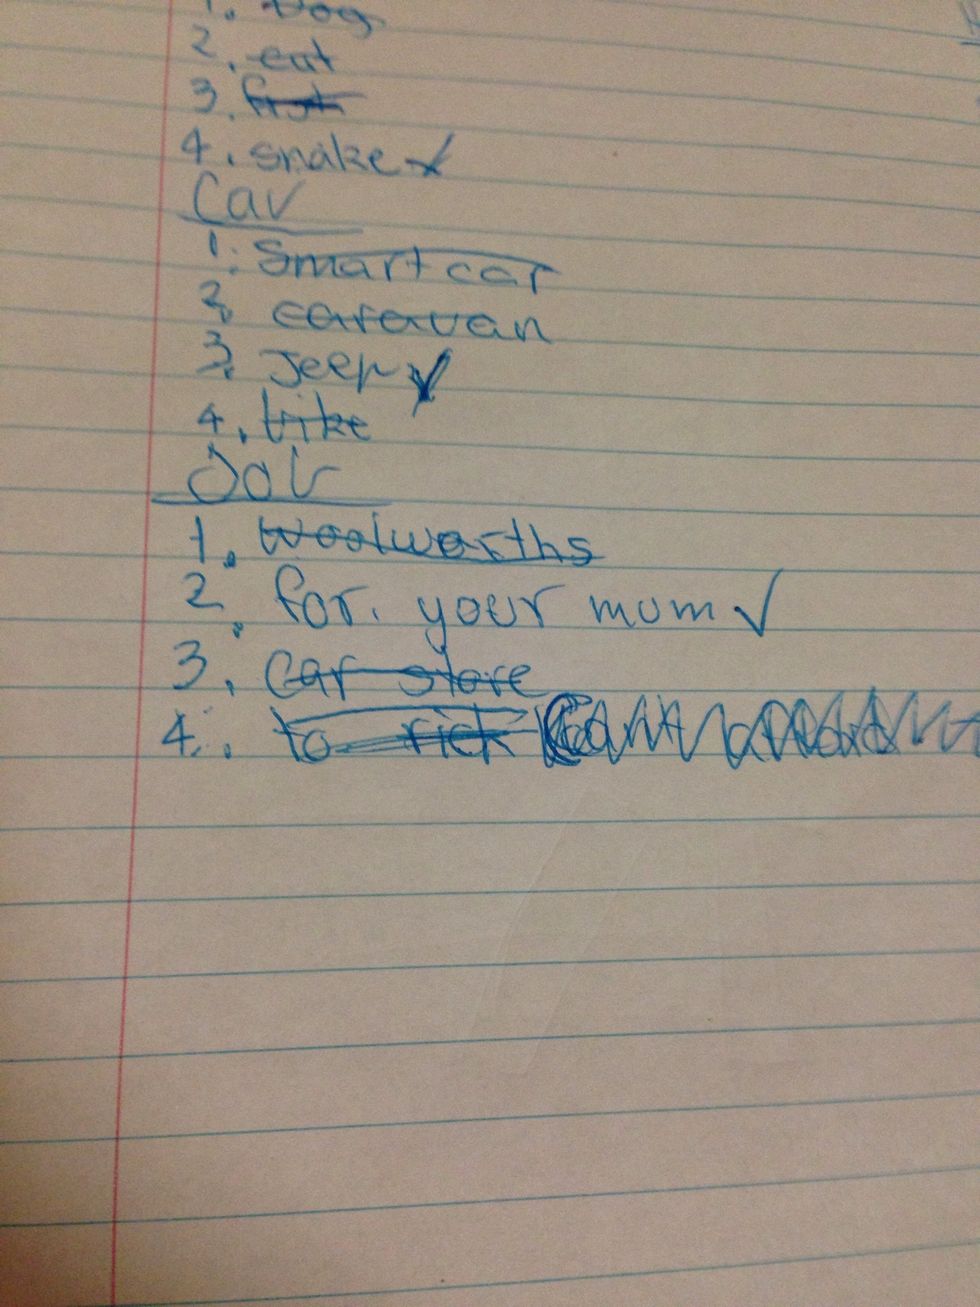 1. Dog
2. cat
3. fish
4. snake ✓
Car
1. Smart car
2. caravan
3. Jeep ✓
4. bike
Job
1. Woolworths
2. for. your mum ✓
3. Car store
4. to rich